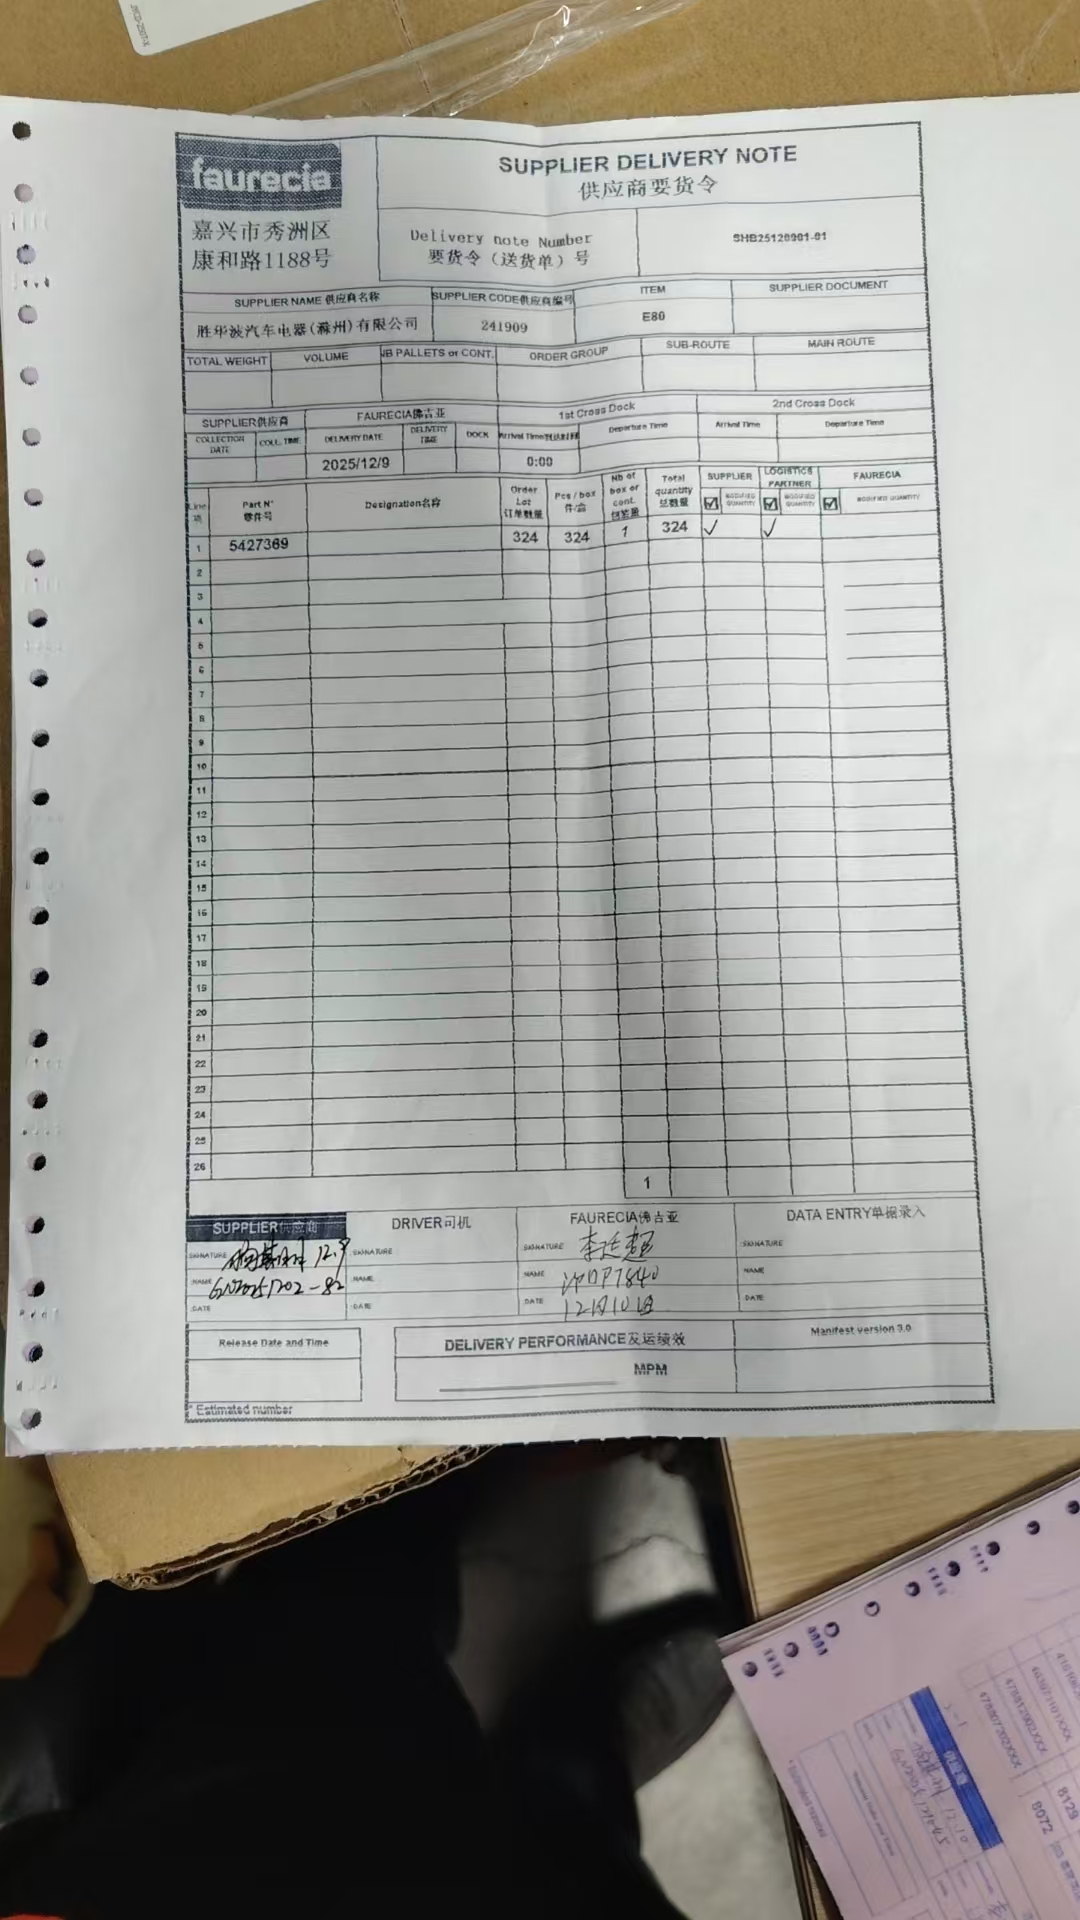 faurecia
嘉兴市秀洲区
康和路1188号
SUPPLIER DELIVERY NOTE
供应商要货令
Delivery note Number
要货令（送货单）号
SHB25120901-01
SUPPLIER NAME 供应商名称
SUPPLIER CODE供应商编号
ITEM
SUPPLIER DOCUMENT
胜华波汽车电器(滁州)有限公司
241909
E80
TOTAL WEIGHT
VOLUME
NB PALLETS or CONT.
ORDER GROUP
SUB-ROUTE
MAIN ROUTE
SUPPLIER供应商
FAURECIA佛吉亚
1st Cross Dock
2nd Cross Dock
COLLECTION DATE
COLL. TIME
DELIVERY DATE
DELIVERY TIME
DOCK
Arrival Time到达时间
Departure Time
Arrival Time
Departure Time
2025/12/9
0:00
Line 项
Part N°
零件号
Designation名称
Order Lot 订单数量
Pcs / box 件/盒
Nb of box or cont. 包装量
Total quantity 总数量
SUPPLIER
MODIFIED QUANTITY
LOGISTICS PARTNER
MODIFIED QUANTITY
FAURECIA
MODIFIED QUANTITY
1 5427369 324 324 1 324 ✓ ✓
2
3
4
5
6
7
8
9
10
11
12
13
14
15
16
17
18
19
20
21
22
23
24
25
26
1
SUPPLIER供应商
DRIVER司机
FAURECIA佛吉亚
DATA ENTRY单据录入
SIGNATURE 12.9
SIGNATURE
SIGNATURE 李廷超
SIGNATURE
NAME GN20251202-82
NAME
NAME
NAME
DATE
DATE
DATE 12月10日
DATE
Release Date and Time
DELIVERY PERFORMANCE发运绩效
Manifest version 3.0
MPM
* Estimated number
供应商
8072
8129